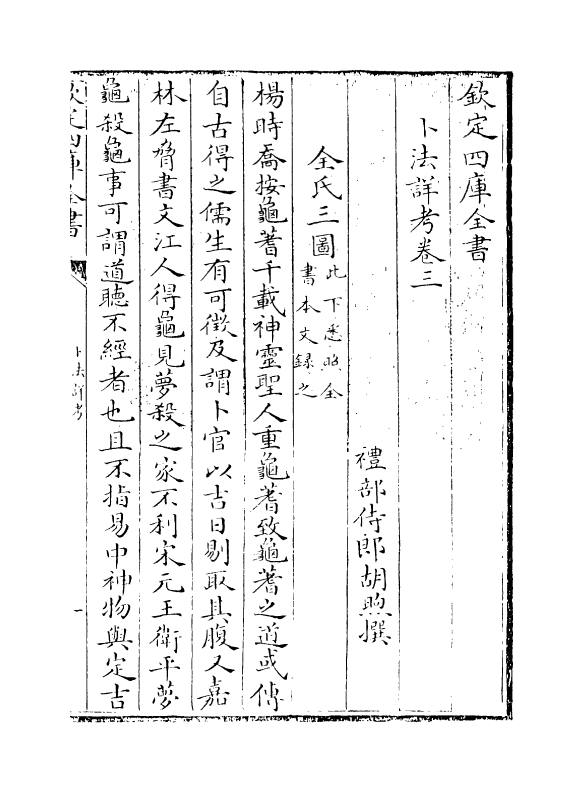 欽定四庫全書
卜法詳考卷三
禮部侍郎胡煦撰
全氏三圖此下悉照全
書本文録之
楊時喬按龜蓍千載神靈聖人重龜蓍致龜蓍之道或傳
自古得之儒生有可徴及謂卜官以吉日剔取其腹又嘉
林左脅書文江人得龜見夢殺之家不利宋元王衛平夢
龜殺龜事可謂道聽不經者也且不指易中神物與定吉
欽定四庫全書
卜法詳考
一